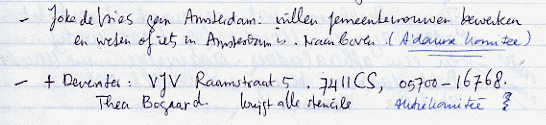 - Joke de Vries geen Amsterdam. willen gemeentevrouwen bewerken
en weten of iets in Amsterdam is. Naar boven (A'damse komitee)
- + Deventer: VJV Raamstraat 5. 7411CS, 05700-16768.
Thea Bogaard. krijgt alle stencils Aktiekomitee ?